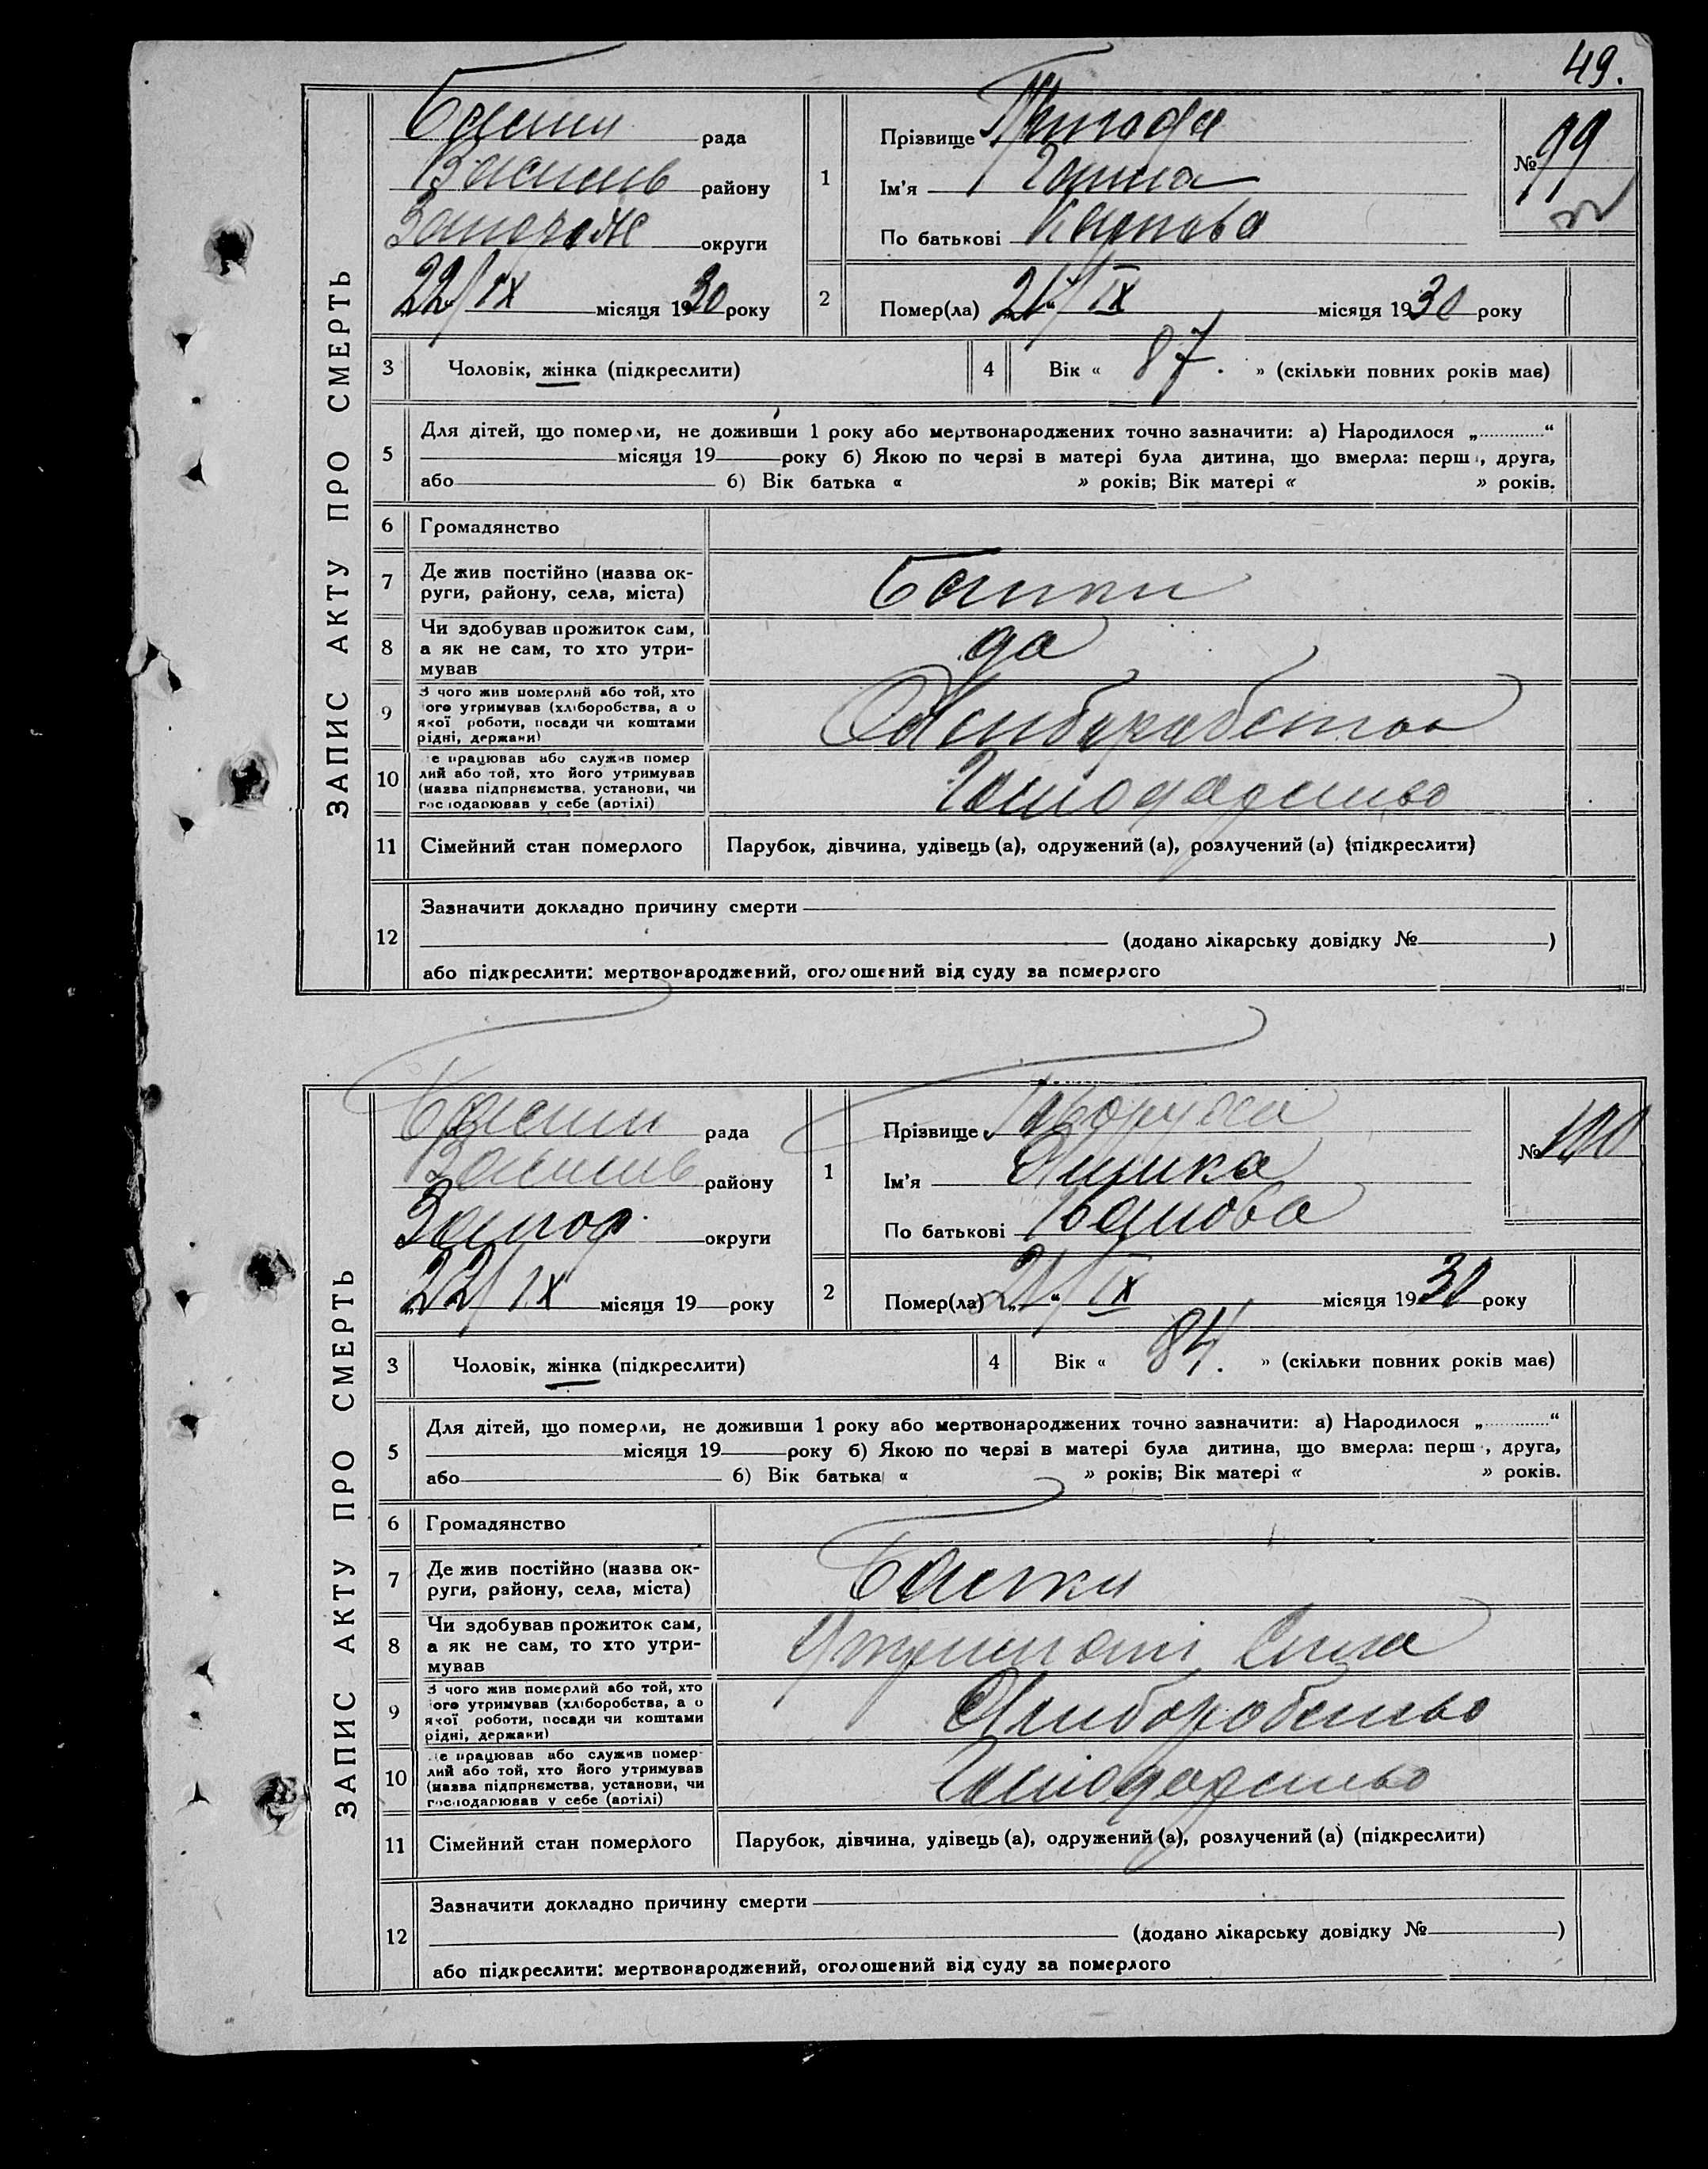 49.
ЗАПИС АКТУ ПРО СМЕРТЬ
рада
Василів району
Запоріж округи
22/IX місяця 1930 року
1
Прізвище
Ім’я Ганна
По батькові Карпова
№ 99
2
Помер(ла) 21/IX місяця 1930 року
3
Чоловік, жінка (підкреслити)
4
Вік « 87. » (скільки повних років має)
5
Для дітей, що померли, не доживши 1 року або мертвонароджених точно зазначити: а) Народилося „ “
місяця 19 року б) Якою по черзі в матері була дитина, що вмерла: перш , друга,
або 6) Вік батька « » років; Вік матері « » років.
6
Громадянство
7
Де жив постійно (назва ок-
руги, району, села, міста)
Балки
8
Чи здобував прожиток сам,
а як не сам, то хто утри-
мував
да
9
З чого жив померлий або той, хто
ого утримував (хліборобства, а о
якої роботи, посади чи коштами
рідні, держави)
Хліборобство
10
е працював або служив помер
лий або той, хто його утримував
(назва підприємства, установи, чи
господарював у себе (артілі)
Господарство
11
Сімейний стан померлого
Парубок, дівчина, удівець (а), одружений (а), розлучений (а) (підкреслити)
12
Зазначити докладно причину смерти
(додано лікарську довідку № )
або підкреслити: мертвонароджений, оголошений від суду за померлого
ЗАПИС АКТУ ПРО СМЕРТЬ
рада
Василів району
Запор. округи
22/IX місяця 19 року
1
Прізвище
Ім’я
По батькові Іванова
№ 100
2
Помер(ла) 21/IX місяця 1930 року
3
Чоловік, жінка (підкреслити)
4
Вік « 84. » (скільки повних років має)
5
Для дітей, що померли, не доживши 1 року або мертвонароджених точно зазначити: а) Народилося „ “
місяця 19 року б) Якою по черзі в матері була дитина, що вмерла: перш , друга,
або 6) Вік батька « » років; Вік матері « » років.
6
Громадянство
7
Де жив постійно (назва ок-
руги, району, села, міста)
Балки
8
Чи здобував прожиток сам,
а як не сам, то хто утри-
мував
Сина
9
З чого жив померлий або той, хто
ого утримував (хліборобства, а о
якої роботи, посади чи коштами
рідні, держави)
Хліборобство
10
е працював або служив помер-
лий або той, хто його утримував
(назва підприємства, установи, чи
господарював у себе (артілі)
Господарство
11
Сімейний стан померлого
Парубок, дівчина, удівець (а), одружений (а), розлучений (а) (підкреслити)
12
Зазначити докладно причину смерти
(додано лікарську довідку № )
або підкреслити: мертвонароджений, оголошений від суду за померлого